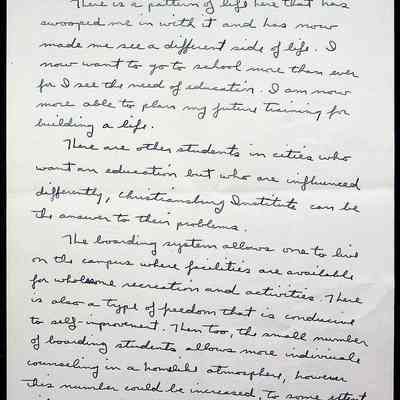 There is a pattern of life here that has
swooped me in with it and has now
made me see a different side of life. I
now want to go to school more than ever
for I see the need of education. I am now
more able to plan my future training for
building a life.
There are other students in cities who
want an education but who are influenced
differently, Christiansburg Institute can be
the answer to their problems.
The boarding system allows one to live
on the campus where facilities are available
for wholesome recreation and activities. There
is also a type of freedom that is conducive
to self-improvement. Then too, the small number
of boarding students allows more individual
counseling in a homelike atmosphere, however
this number could be increased, to some extent